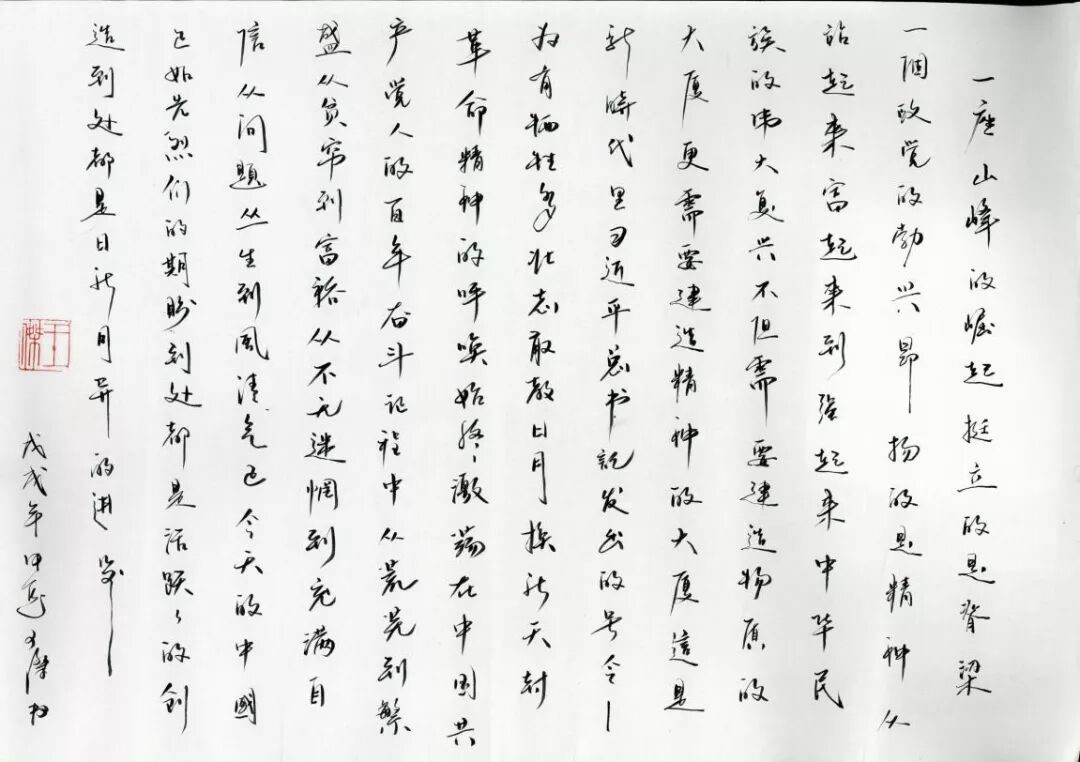 一座山峰的崛起挺立的是脊梁
一個政党的勃兴昂扬的是精神从
站起来富起来到强起来中华民
族的伟大复兴不但需要建造物质的
大厦更需要建造精神的大厦這是
新時代里习近平总书记发出的号令
为有牺牲多壮志敢教日月换新天对
革命精神的呼唤始终激荡在中国共
产党人的百年奋斗记程中从荒芜到繁
盛从贫穷到富裕从不无迷惘到充满自
信从问题丛生到风清气正今天的中國
已如先烈们的期盼到处都是活跃々的创
造到处都是日新月异的进步
戊戌年
王